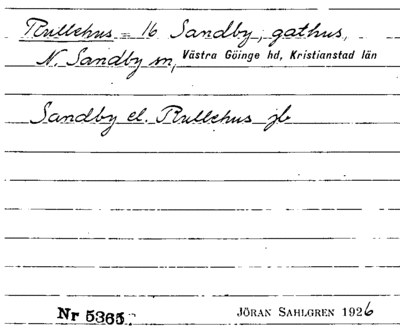 Rullehus = 16 Sandby, gathus,
N. Sandby sn, Västra Göinge hd, Kristianstad län
Sandby el. Rullehus jb
Nr 5365.
JÖRAN SAHLGREN 1926